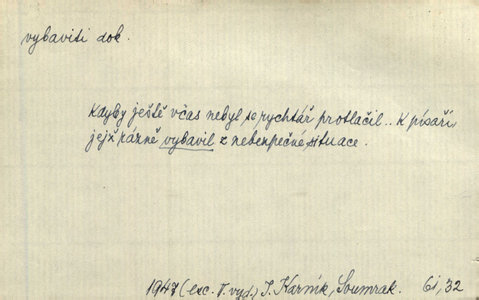 vybaviti dok.
Kdyby ještě včas nebyl se rychtář protlačil.. k písaři,
jejž rázně vybavil z nebezpečné situace.
1947 (exc. V. vyd.) J. Karník, Soumrak. 61, 32